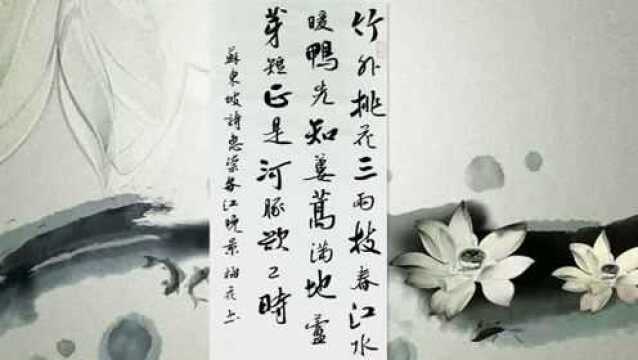 竹外桃花三兩枝春江水
暖鴨先知蔞蒿滿地蘆
芽短正是河豚欲上時
蘇東坡詩惠崇春江晚景